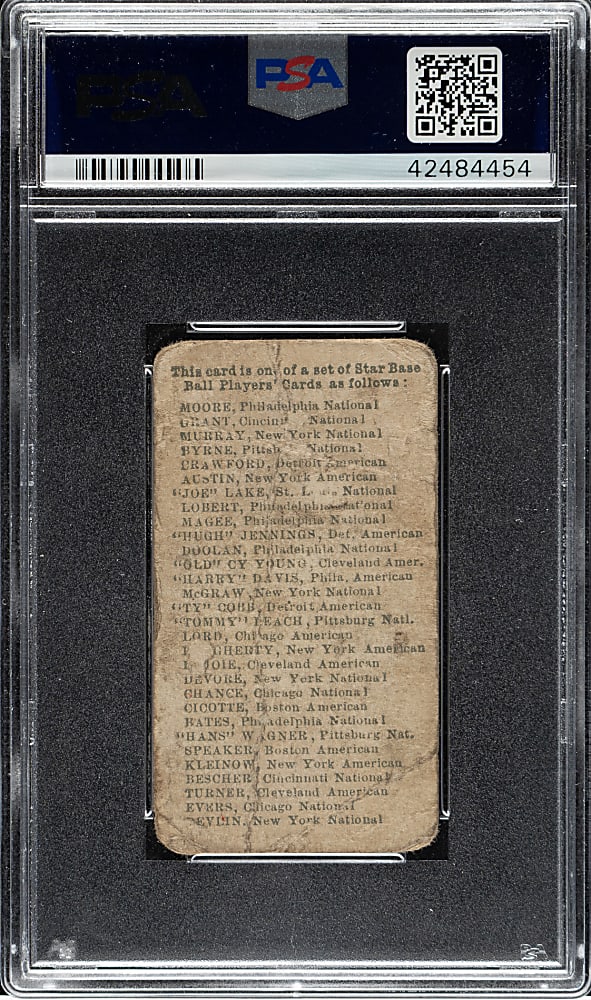 PSA
PSA
42484454
This card is one of a set of Star Base
Ball Players' Cards as follows:
MOORE, Philadelphia National
GRANT, National
MURRAY, New York National
BYRNE, National
CRAWFORD, Detroit American
AUSTIN, New York American
"JOE" LAKE, St. National
LOBERT, Philadelphia National
MAGEE, Philadelphia National
"HUGH" JENNINGS, Det. American
DOOLAN, Philadelphia National
"OLD" CY YOUNG, Cleveland Amer.
"HARRY" DAVIS, Phila. American
McGRAW, New York National
"TY" COBB, Detroit American
"TOMMY" LEACH, Pittsburg Natl.
LORD, Chicago American
New York American
Cleveland American
DEVORE, New York National
CHANCE, Chicago National
CICOTTE, Boston American
BATES, Philadelphia National
"HANS" WAGNER, Pittsburg Nat.
SPEAKER, Boston American
KLEINOW, New York American
BESCHER, Cincinnati National
TURNER, Cleveland American
EVERS, Chicago National
DEVLIN, New York National